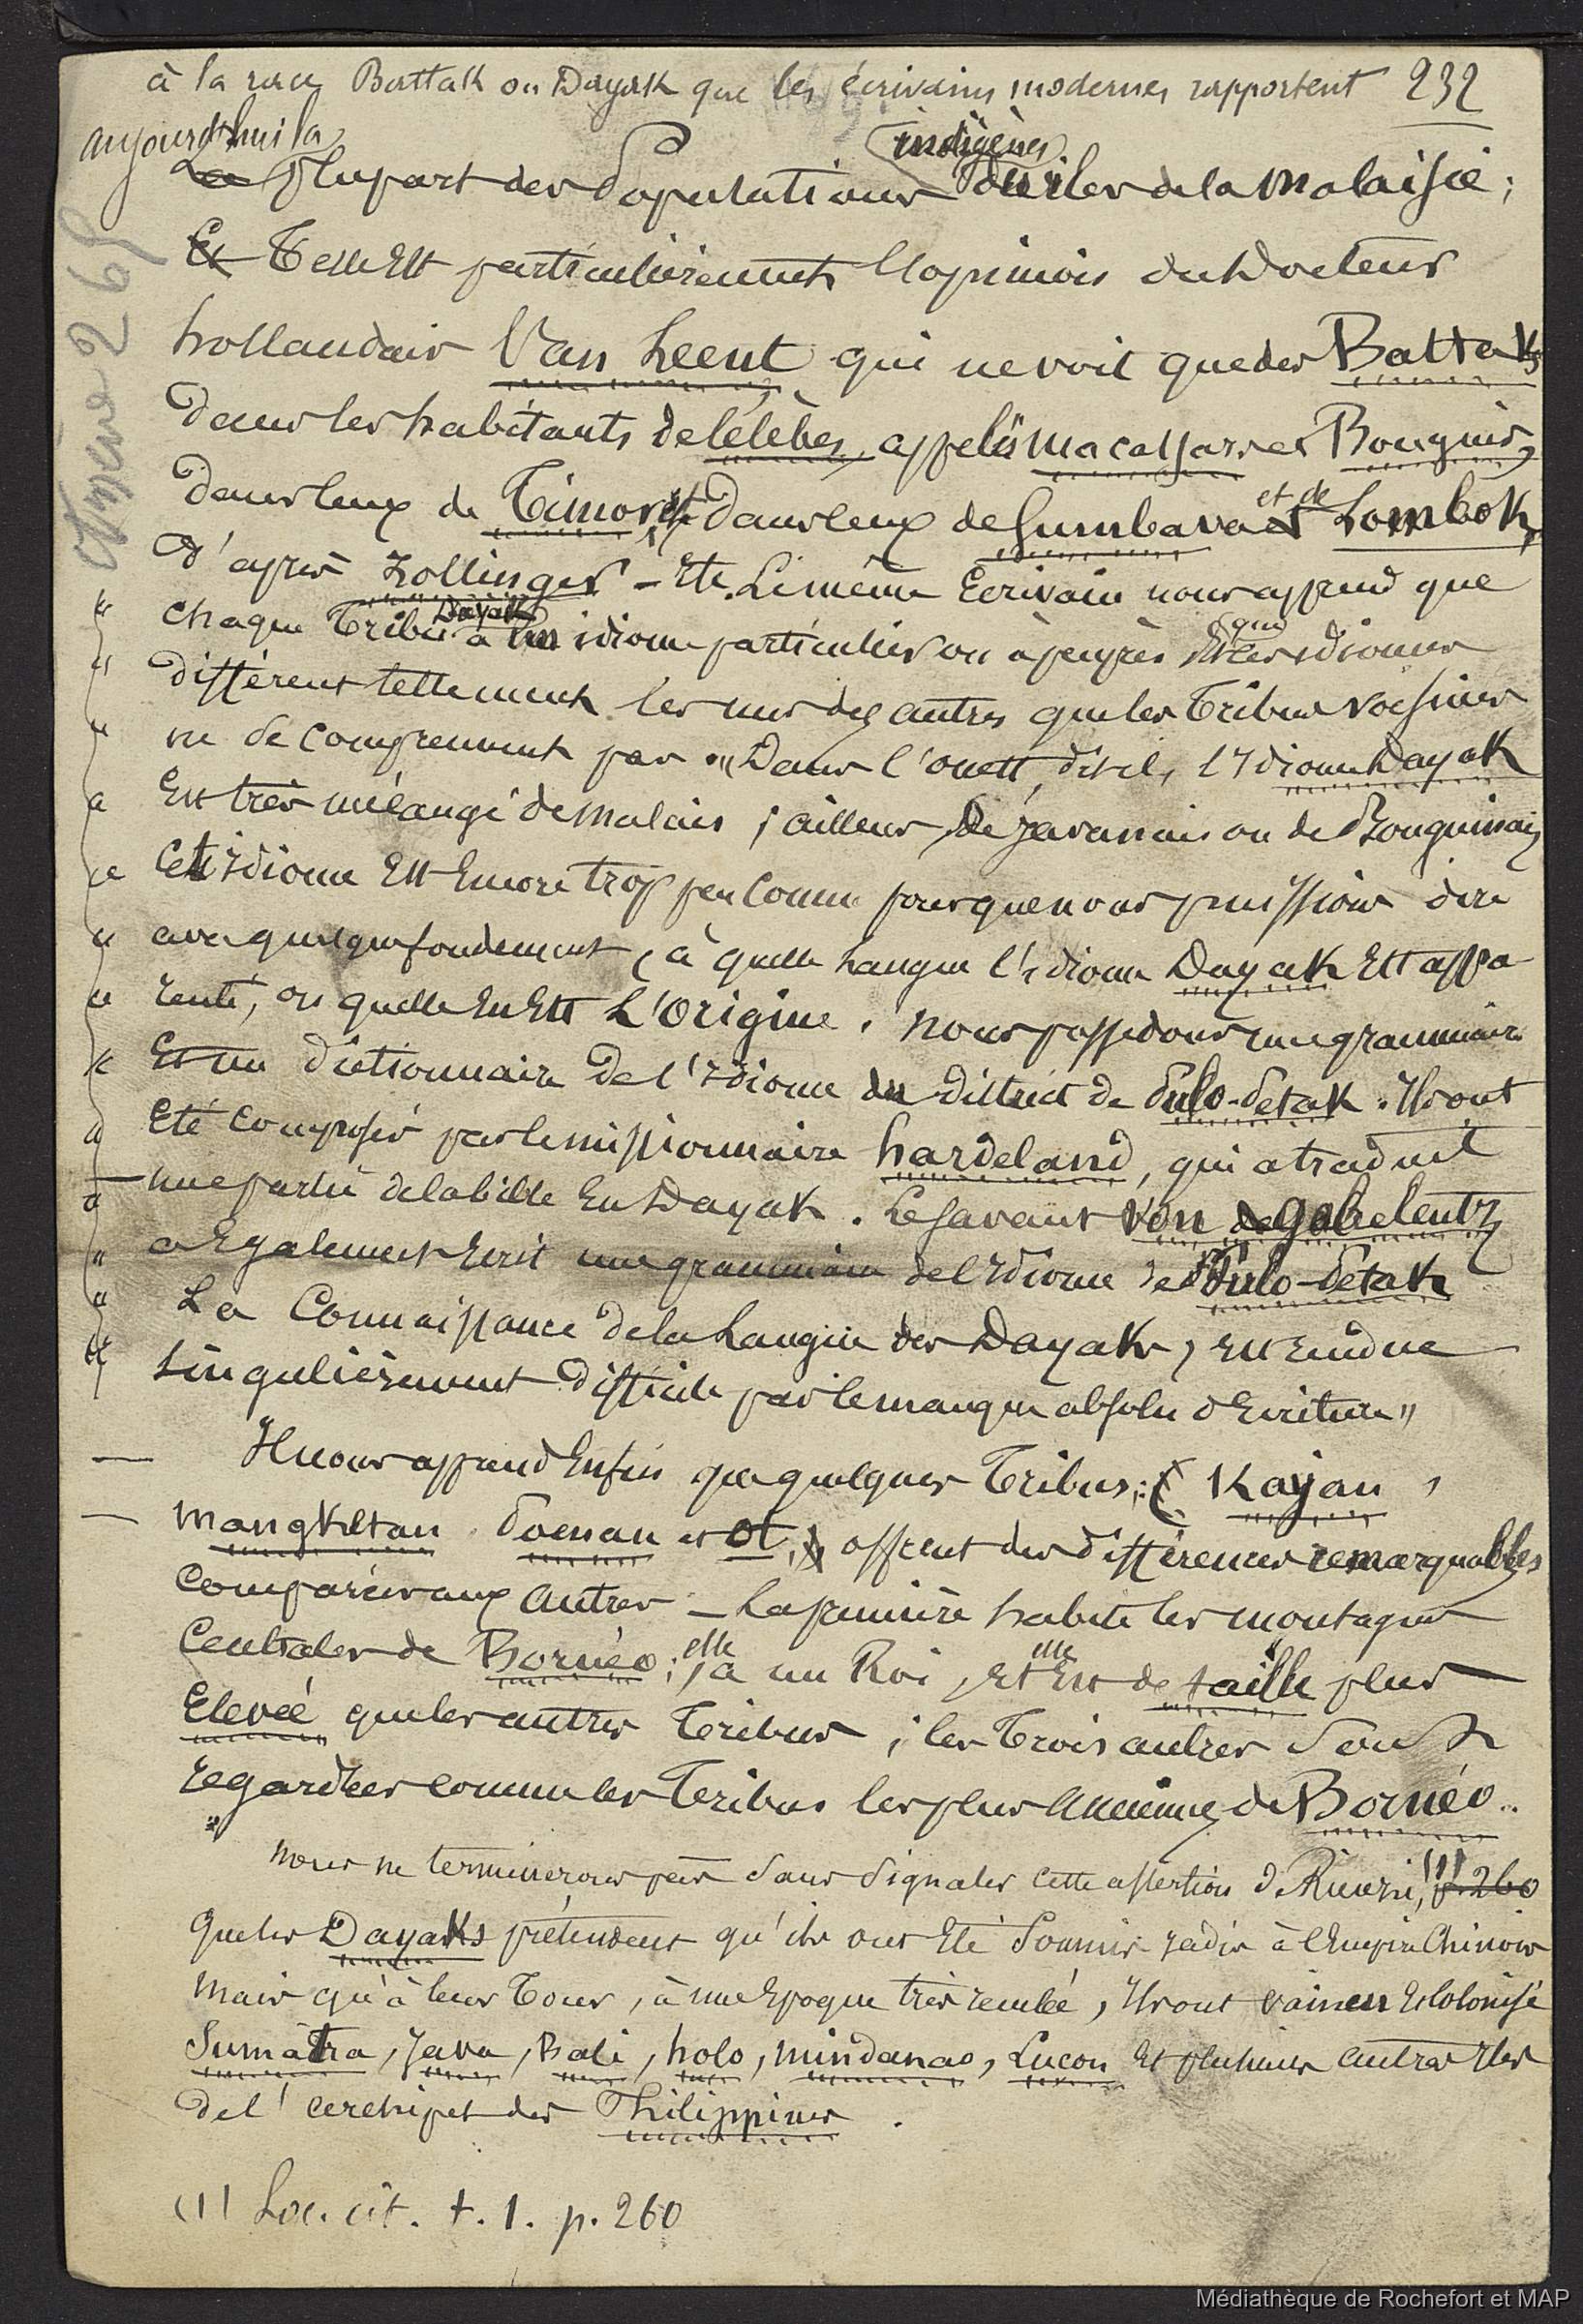 à la race Battak ou Dayak que les écrivains modernes rapportent 232
aujourd'hui la
indigènes
La plupart des Populations des iles de la Malaisie ;
Et Telle Est particulièrement l'opinion du Docteur
hollandais Van Leent qui ne voit que des Battaks
Dans les habitants de Célèbes, appelés Macassars et Bouguis,
et de
Dans ceux de Timor, et Dans ceux de Sumbava et Lombok,
d'après Zollinger – Etc. Le même Ecrivain nous apprend que
Dayak
que
chaque Tribu a un idiome particulier ou à peu près les idiomes
diffèrent tellement les uns des autres que les Tribus voisines
ne se comprennent pas. "Dans l'ouest, dit-il, l'Idiome Dayak
Est très mélangé de malais ; ailleurs, de javanais ou de Bouguinais
Cet Idiome Est Encore trop peu connu pour que nous puissions dire
avec quelque fondement, à quelle Langue l'idiome Dayak Est appa-
renté, ou quelle En Est L'Origine. Nous possédons une grammaire
Et un Dictionnaire de l'Idiome du District de Pulo-Petak. Ils ont
Eté composés par le missionnaire Hardeland, qui a traduit
une partie de la bible En Dayak. Le Savant Von de Gabelentz
a Egalement Ecrit une grammaire de l'Idiome de Pulo-Petak
La Connaissance de la Langue des Dayaks, Est rendue
singulièrement difficile par le manque absolu d'Ecriture"
Il nous apprend Enfin que quelques Tribus : ( Kayan,
Mangketan, Poenan et Ot, ) offrent des différences remarquables
Comparées aux autres – La première habite les montagnes
elle
elle
Centrales de Bornéo ; a un Roi, et Est de taille plus
Elevée que les autres Tribus ; les Trois autres sont
regardées comme les Tribus les plus anciennes de Bornéo..
Nous ne terminerons pas sans signaler cette assertion de Rienzi, (1) p. 260
que les Dayaks prétendent qu'ils ont Eté Soumis jadis à l'Empire Chinois
Mais qu'à leur Tour, à une Epoque très reculée, Ils ont vaincu Et Colonisé
Sumàtra, Java, Bali, holo, Mindanao, Luçon Et plusieurs autres Iles
de l'archipel des Philippines.
(1) Loc. cit. t. 1. p. 260
Médiathèque de Rochefort et MAP